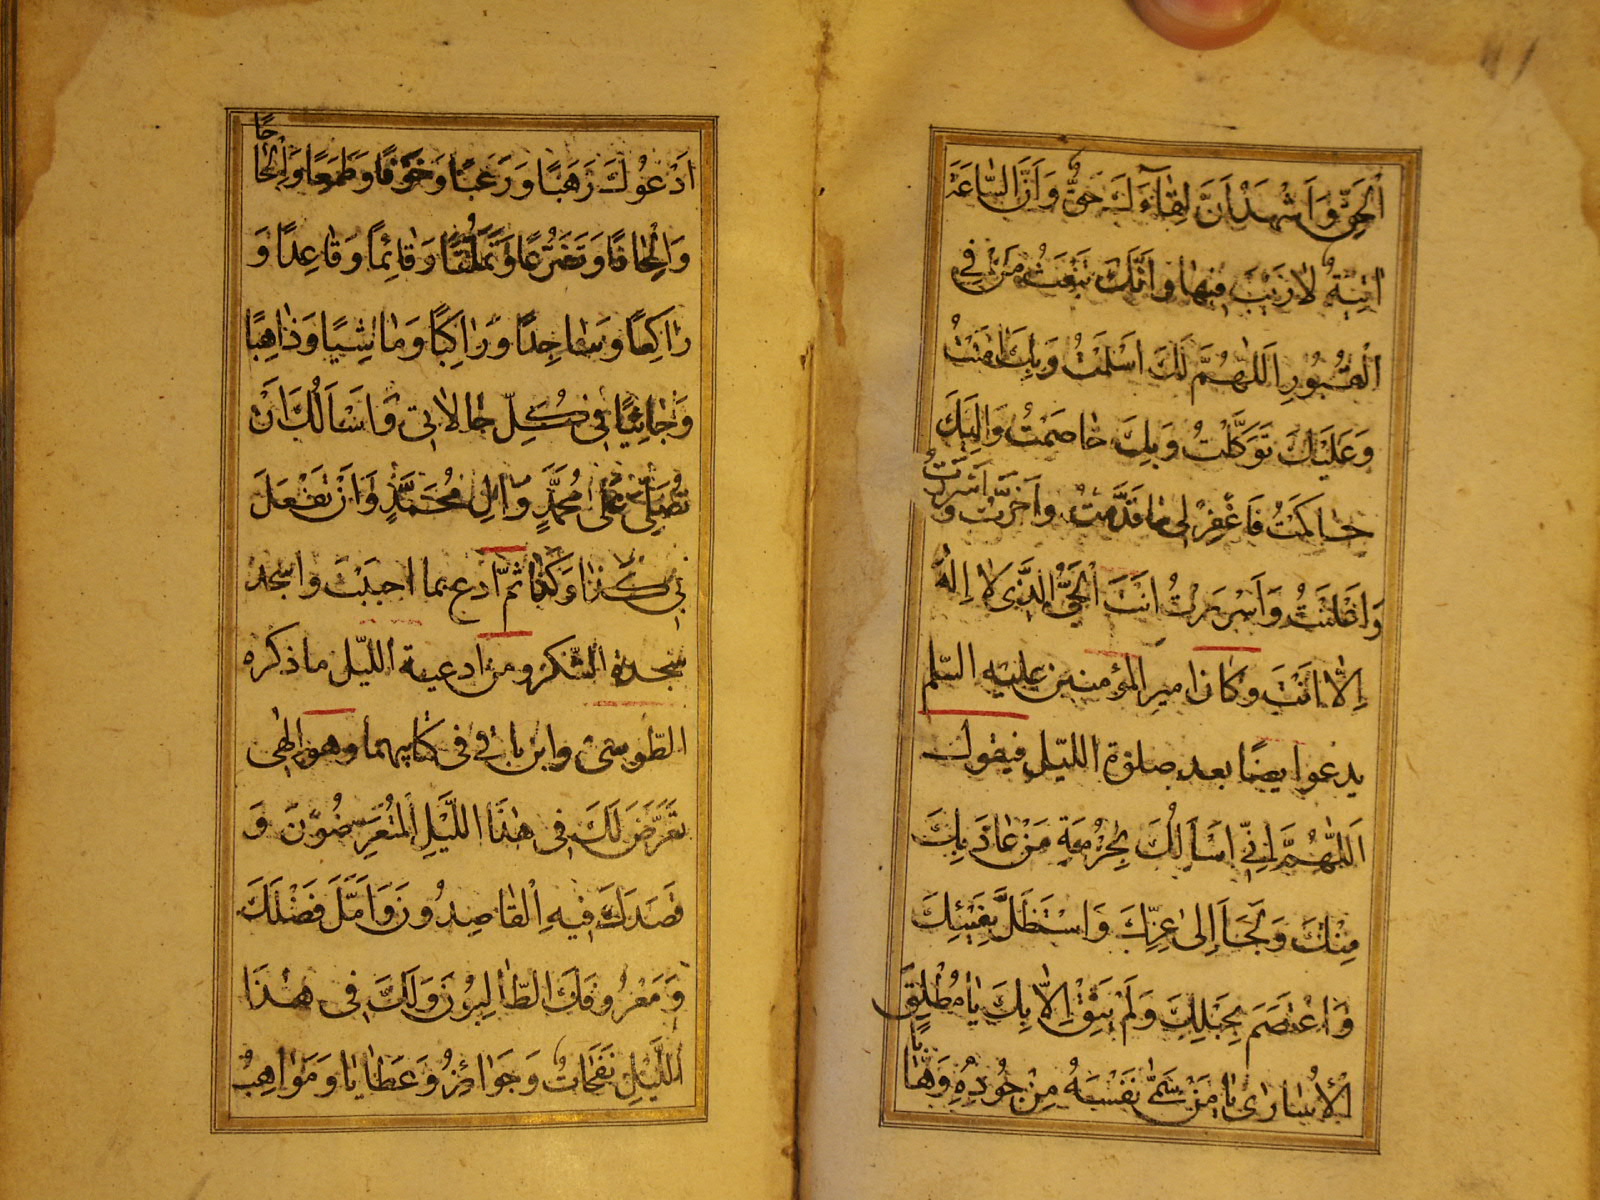 اَلْحَقِّ وَاَشْهَدُ اَنَّ لِقٰآءَكَ حَقٌّ وَاَنَّ السّٰاعَةَ
اٰتِيَةٌ لٰارَيْبَ فِيهٰا وَاَنَّكَ تَبْعَثُ مَنْ فِي
الْقُبُورِ اَللّٰهُمَّ لَكَ اَسْلَمْتُ وَبِكَ اٰمَنْتُ
وَعَلَيْكَ تَوَكَّلْتُ وَبِكَ خٰاصَمْتُ وَاِلَيْكَ
حٰاكَمْتُ فَاغْفِرْ لِي مٰا قَدَّمْتُ وَاَخَّرْتُ وَ اَسْرَرْتُ
وَاَعْلَنْتُ وَاَسْرَرْتُ اَنْتَ الْحَيُّ الَّذِي لٰا اِلٰهَ
اِلّٰا اَنْتَ وَكٰانَ امير المؤمنين عليه السّلم
يدعوا يضًا بعد صلوة اللّيل فيقول
اَللّٰهُمَّ اِنِّي اَسْاَلُكَ بِحُرْمَةِ مَنْ عٰاذَ بِكَ
مِنْكَ وَلَجَاَ اِلىٰ عِزِّكَ وَاسْتَظَلَّ بِفَيْئِكَ
وَاعْتَصَمَ بِحَبْلِكَ وَلَمْ يَثِقْ اِلّٰا بِكَ يٰا مُطْلِقَ
الْاُسٰارىٰ يٰا مَنْ سَمّىٰ نَفْسَهُ مِنْ جُودِهِ وَهّٰابًا
اَدْعُوكَ رَهَبًا وَرَغَبًا وَخَوْفًا وَطَمَعًا وَاِلْحٰاحًا
وَاِلْحٰافًا وَتَضَرُّعًا وَتَمَلُّقًا وَقٰائِمًا وَقٰاعِدًا وَ
رٰاكِعًا وَسٰاجِدًا وَرٰاكِبًا وَمٰاشِيًا وَذٰاهِبًا
وَجٰائِيًا فِي كُلِّ حٰالٰاتِي وَاَسْاَلُكَ اَنْ
تُصَلِّيَ عَلىٰ مُحَمَّدٍ وَاٰلِ مُحَمَّدٍ وَاَنْ تَفْعَلَ
بِي كَذٰا وَكَذٰا ثمّ ادع بما احببت واسجد
سجدة الشّكر ومن ادعية اللّيل ما ذكره
الطّوسى وابن باقي فى كتابيهما وهو اِلٰهي
تَعَرَّضَ لَكَ فِي هٰذَا اللَّيْلِ الْمُتَعَرِّضُونَ وَ
قَصَدَكَ فِيهِ الْقٰاصِدُونَ وَاَمَّلَ فَضْلَكَ
وَمَعْرُوفَكَ الطّٰالِبُونَ وَلَكَ فِي هٰذَا
اللَّيْلِ نَفَحٰاتٌ وَجَوٰائِزُ وَعَطٰايٰا وَمَوٰاهِبُ